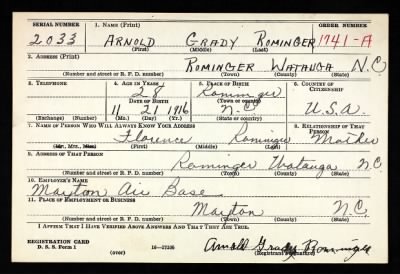 SERIAL NUMBER 1. NAME (Print) ORDER NUMBER
2033 ARNOLD GRADY ROMINGER 1741-A
(First) (Middle) (Last)
2. ADDRESS (Print)
ROMINGER WATAUGA N.C.
(Number and street or R. F. D. number) (Town) (County) (State)
3. TELEPHONE 4. AGE IN YEARS 5. PLACE OF BIRTH 6. COUNTRY OF CITIZENSHIP
28 Rominger
DATE OF BIRTH (Town or county)
11 21 1916 N.C. U.S.A.
(Exchange) (Number) (Mo.) (Day) (Yr.) (State or country)
7. NAME OF PERSON WHO WILL ALWAYS KNOW YOUR ADDRESS 8. RELATIONSHIP OF THAT PERSON
Florence Rominger Mother
(Mr., Mrs., Miss) (First) (Middle) (Last)
9. ADDRESS OF THAT PERSON
Rominger Watauga N.C.
(Number and street or R. F. D. number) (Town) (County) (State)
10. EMPLOYER'S NAME
Maxton Air Base
11. PLACE OF EMPLOYMENT OR BUSINESS
Maxton N.C.
(Number and street or R. F. D. number) (Town) (County) (State)
I AFFIRM THAT I HAVE VERIFIED ABOVE ANSWERS AND THAT THEY ARE TRUE.
REGISTRATION CARD
D. S. S. Form 1 (over) 16—17105 Arnold Grady Rominger
(Registrant's signature)